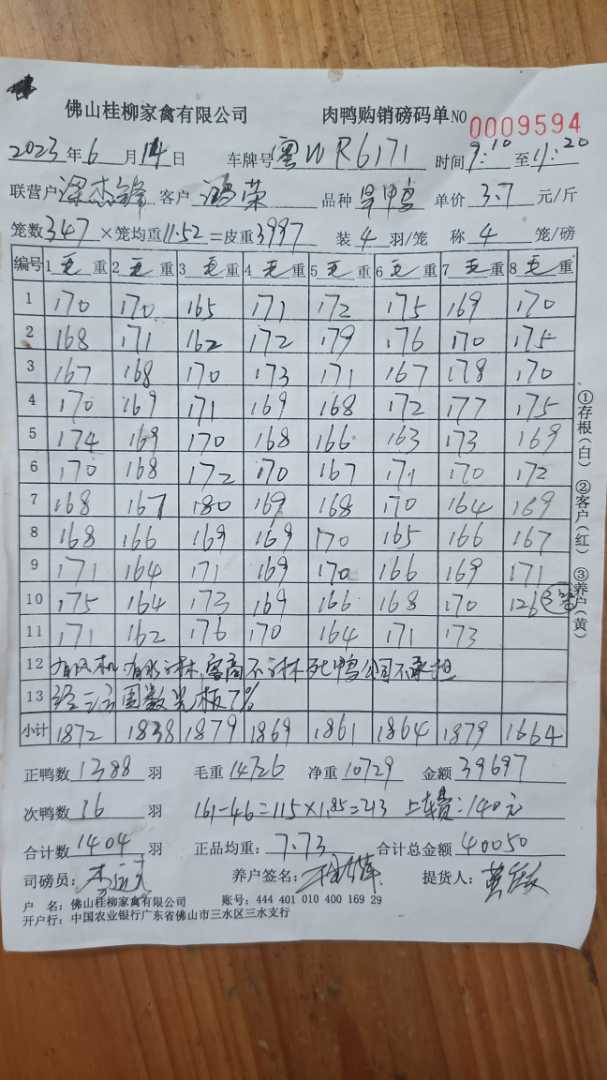 佛山桂柳家禽有限公司 肉鸭购销磅码单 NO 0009594
2023年6月14日 车牌号 粤WR6171 时间 9:10 至 11:20
联营户 梁杰锋 客户 鸿荣 品种 旱鸭 单价 3.7 元/斤
笼数 347 ×笼均重 11.52 =皮重 3997 装 4 羽/笼 称 4 笼/磅
编号 1 毛 重 2 毛 重 3 毛 重 4 毛 重 5 毛 重 6 毛 重 7 毛 重 8 毛 重
1 170 170 165 171 172 175 169 170
2 168 171 162 172 179 176 170 175
3 167 168 170 173 171 167 178 170
4 170 169 171 169 168 172 177 175
5 174 169 170 168 166 163 173 169
6 170 168 172 170 167 171 170 172
7 168 167 180 169 168 170 164 169
8 168 166 169 169 170 165 166 167
9 171 164 171 169 170 166 169 171
10 175 164 173 169 166 168 170 126 3笼
11 171 162 176 170 164 171 173
12 有风机 有水淋,客商不淋死鸭公司不承担
13 经三方围数光板7%
小计 1872 1838 1879 1869 1861 1864 1879 1664
正鸭数 1388 羽 毛重 14726 净重 10729 金额 39697
次鸭数 16 羽 161-46=115×1.85=213 上车费:140元
合计数 1404 羽 正品均重: 7.73 合计总金额 40050
司磅员: 养户签名: 提货人:
户 名: 佛山桂柳家禽有限公司 账号: 444 401 010 400 169 29
开户行: 中国农业银行广东省佛山市三水区三水支行
①存根(白) ②客户(红) ③养户(黄)